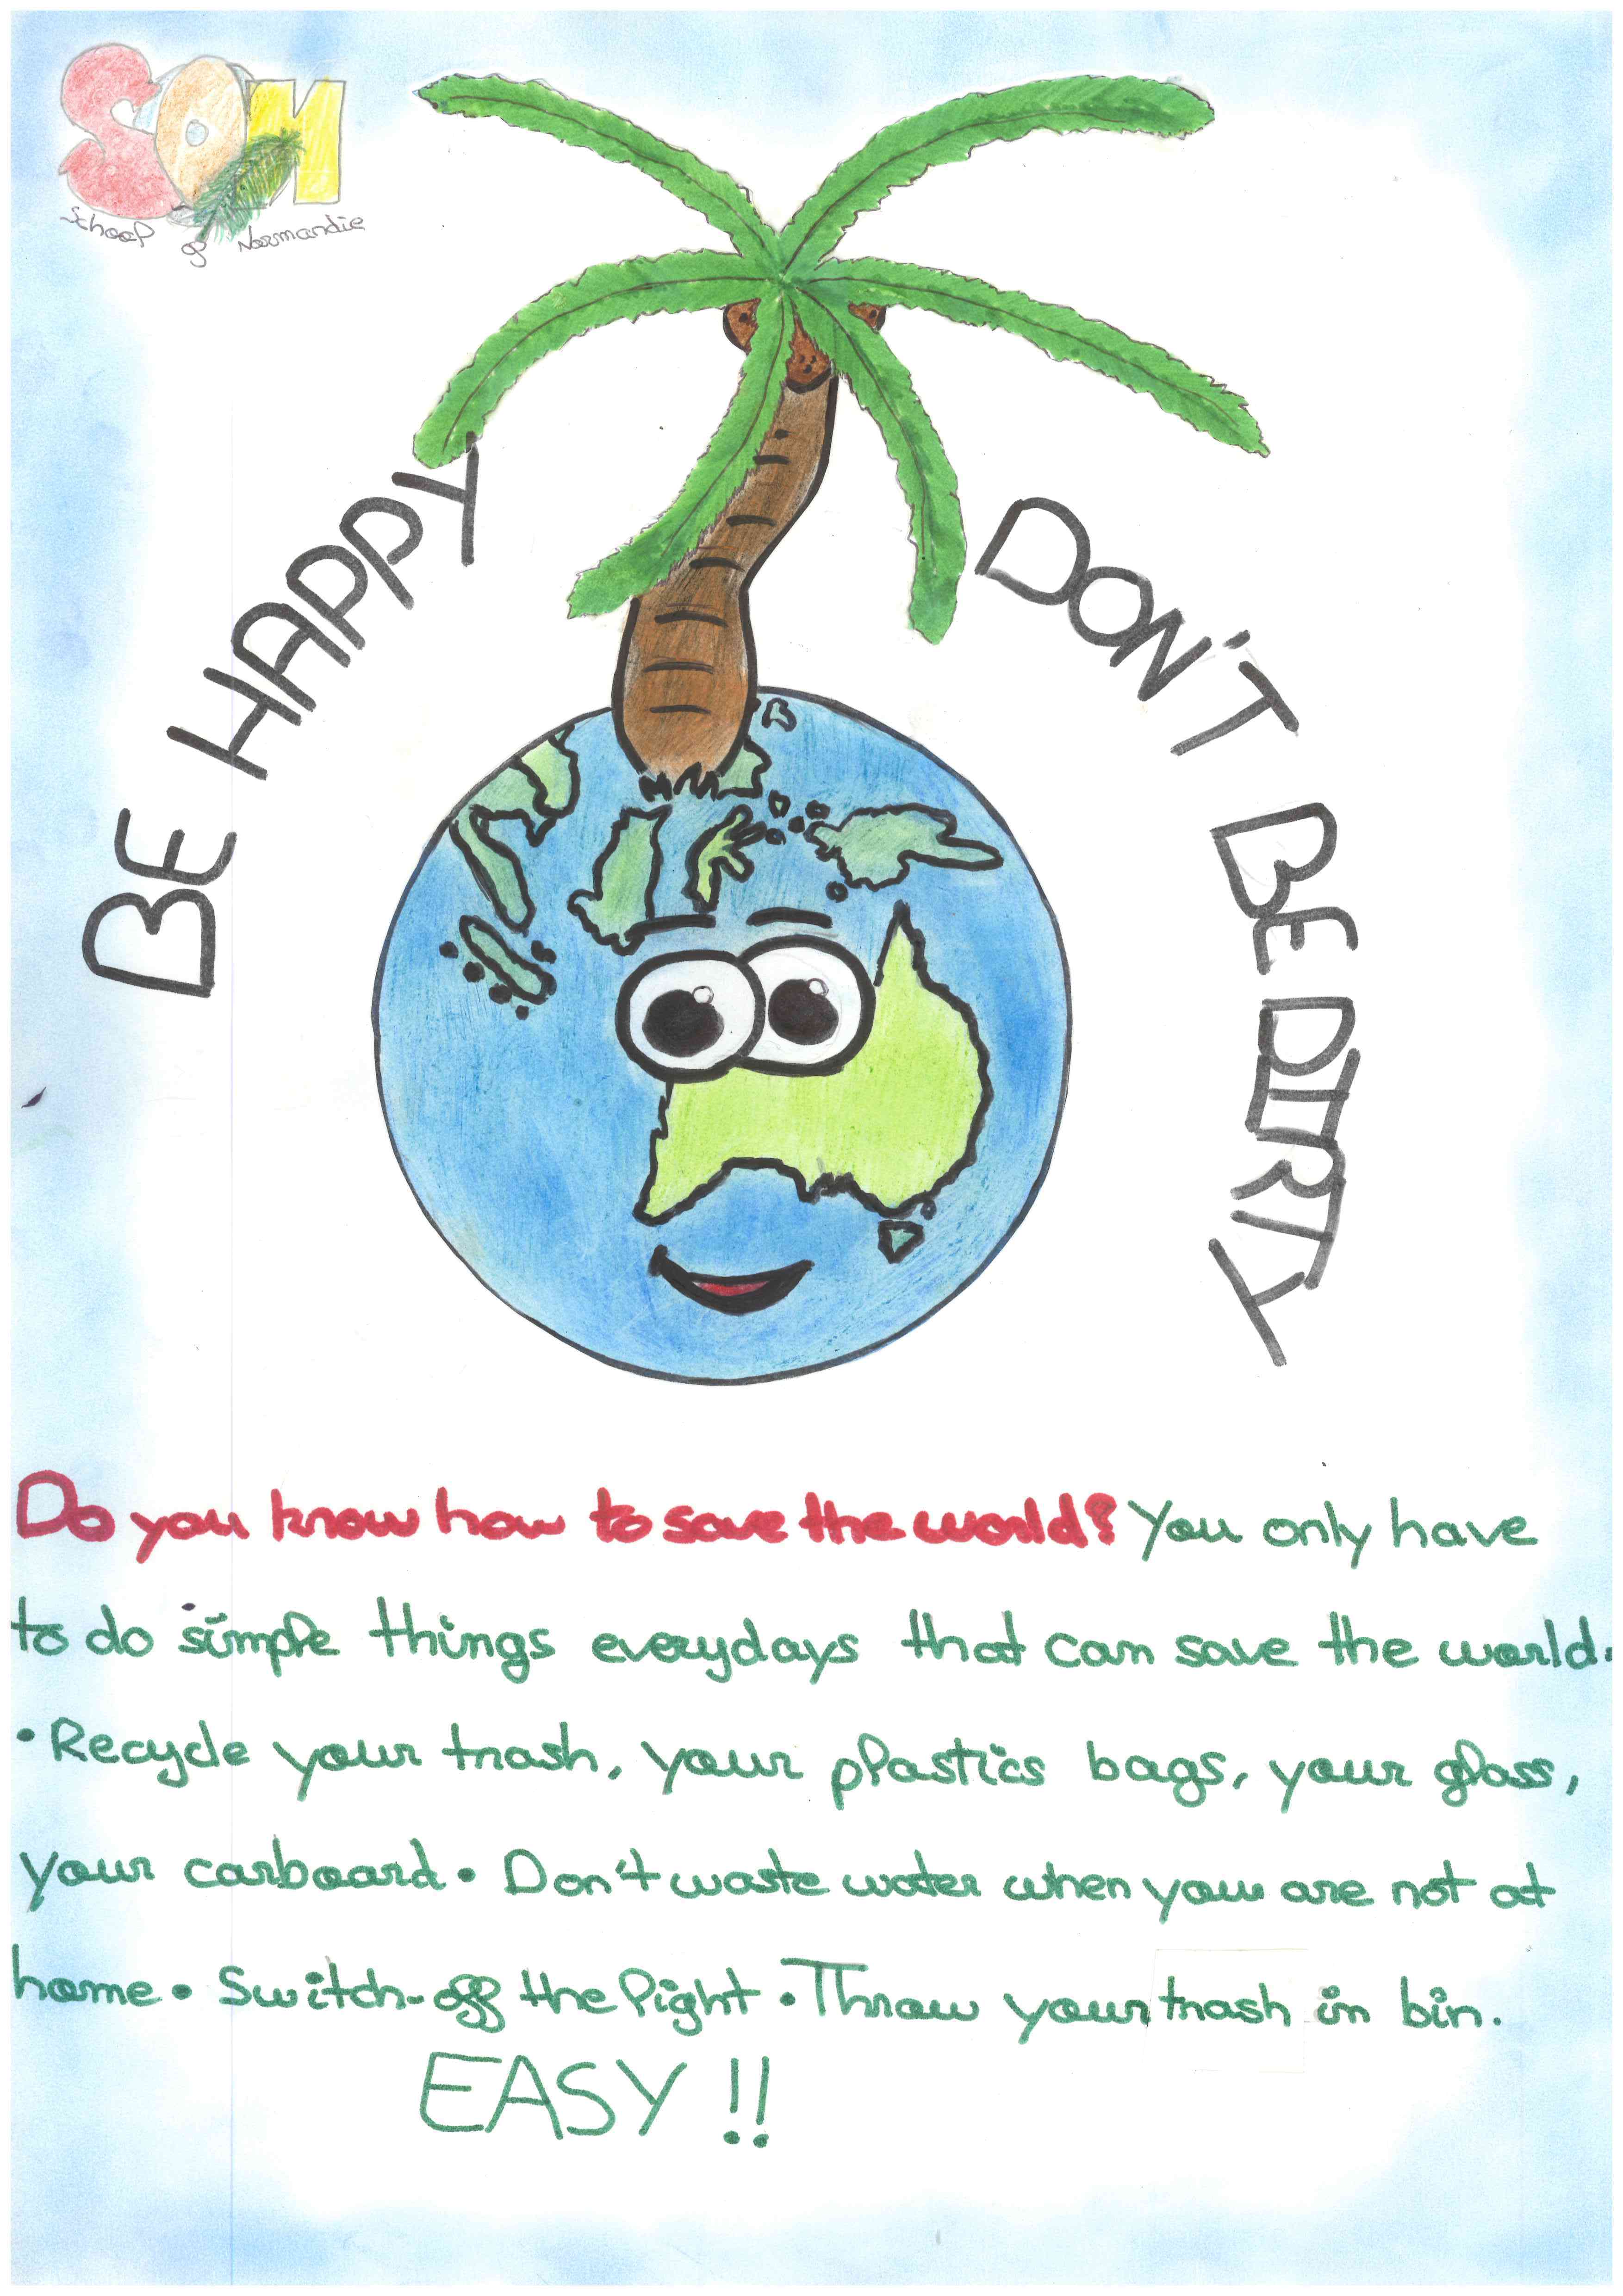 SOM
School of Normandie
BE HAPPY
DON'T BE DIRTY
Do you know how to save the world? You only have
to do simple things everydays that can save the world.
• Recycle your trash, your plastics bags, your glass,
your carboard. Don't waste water when you are not at
home. Switch-off the light. Throw your trash in bin.
EASY !!